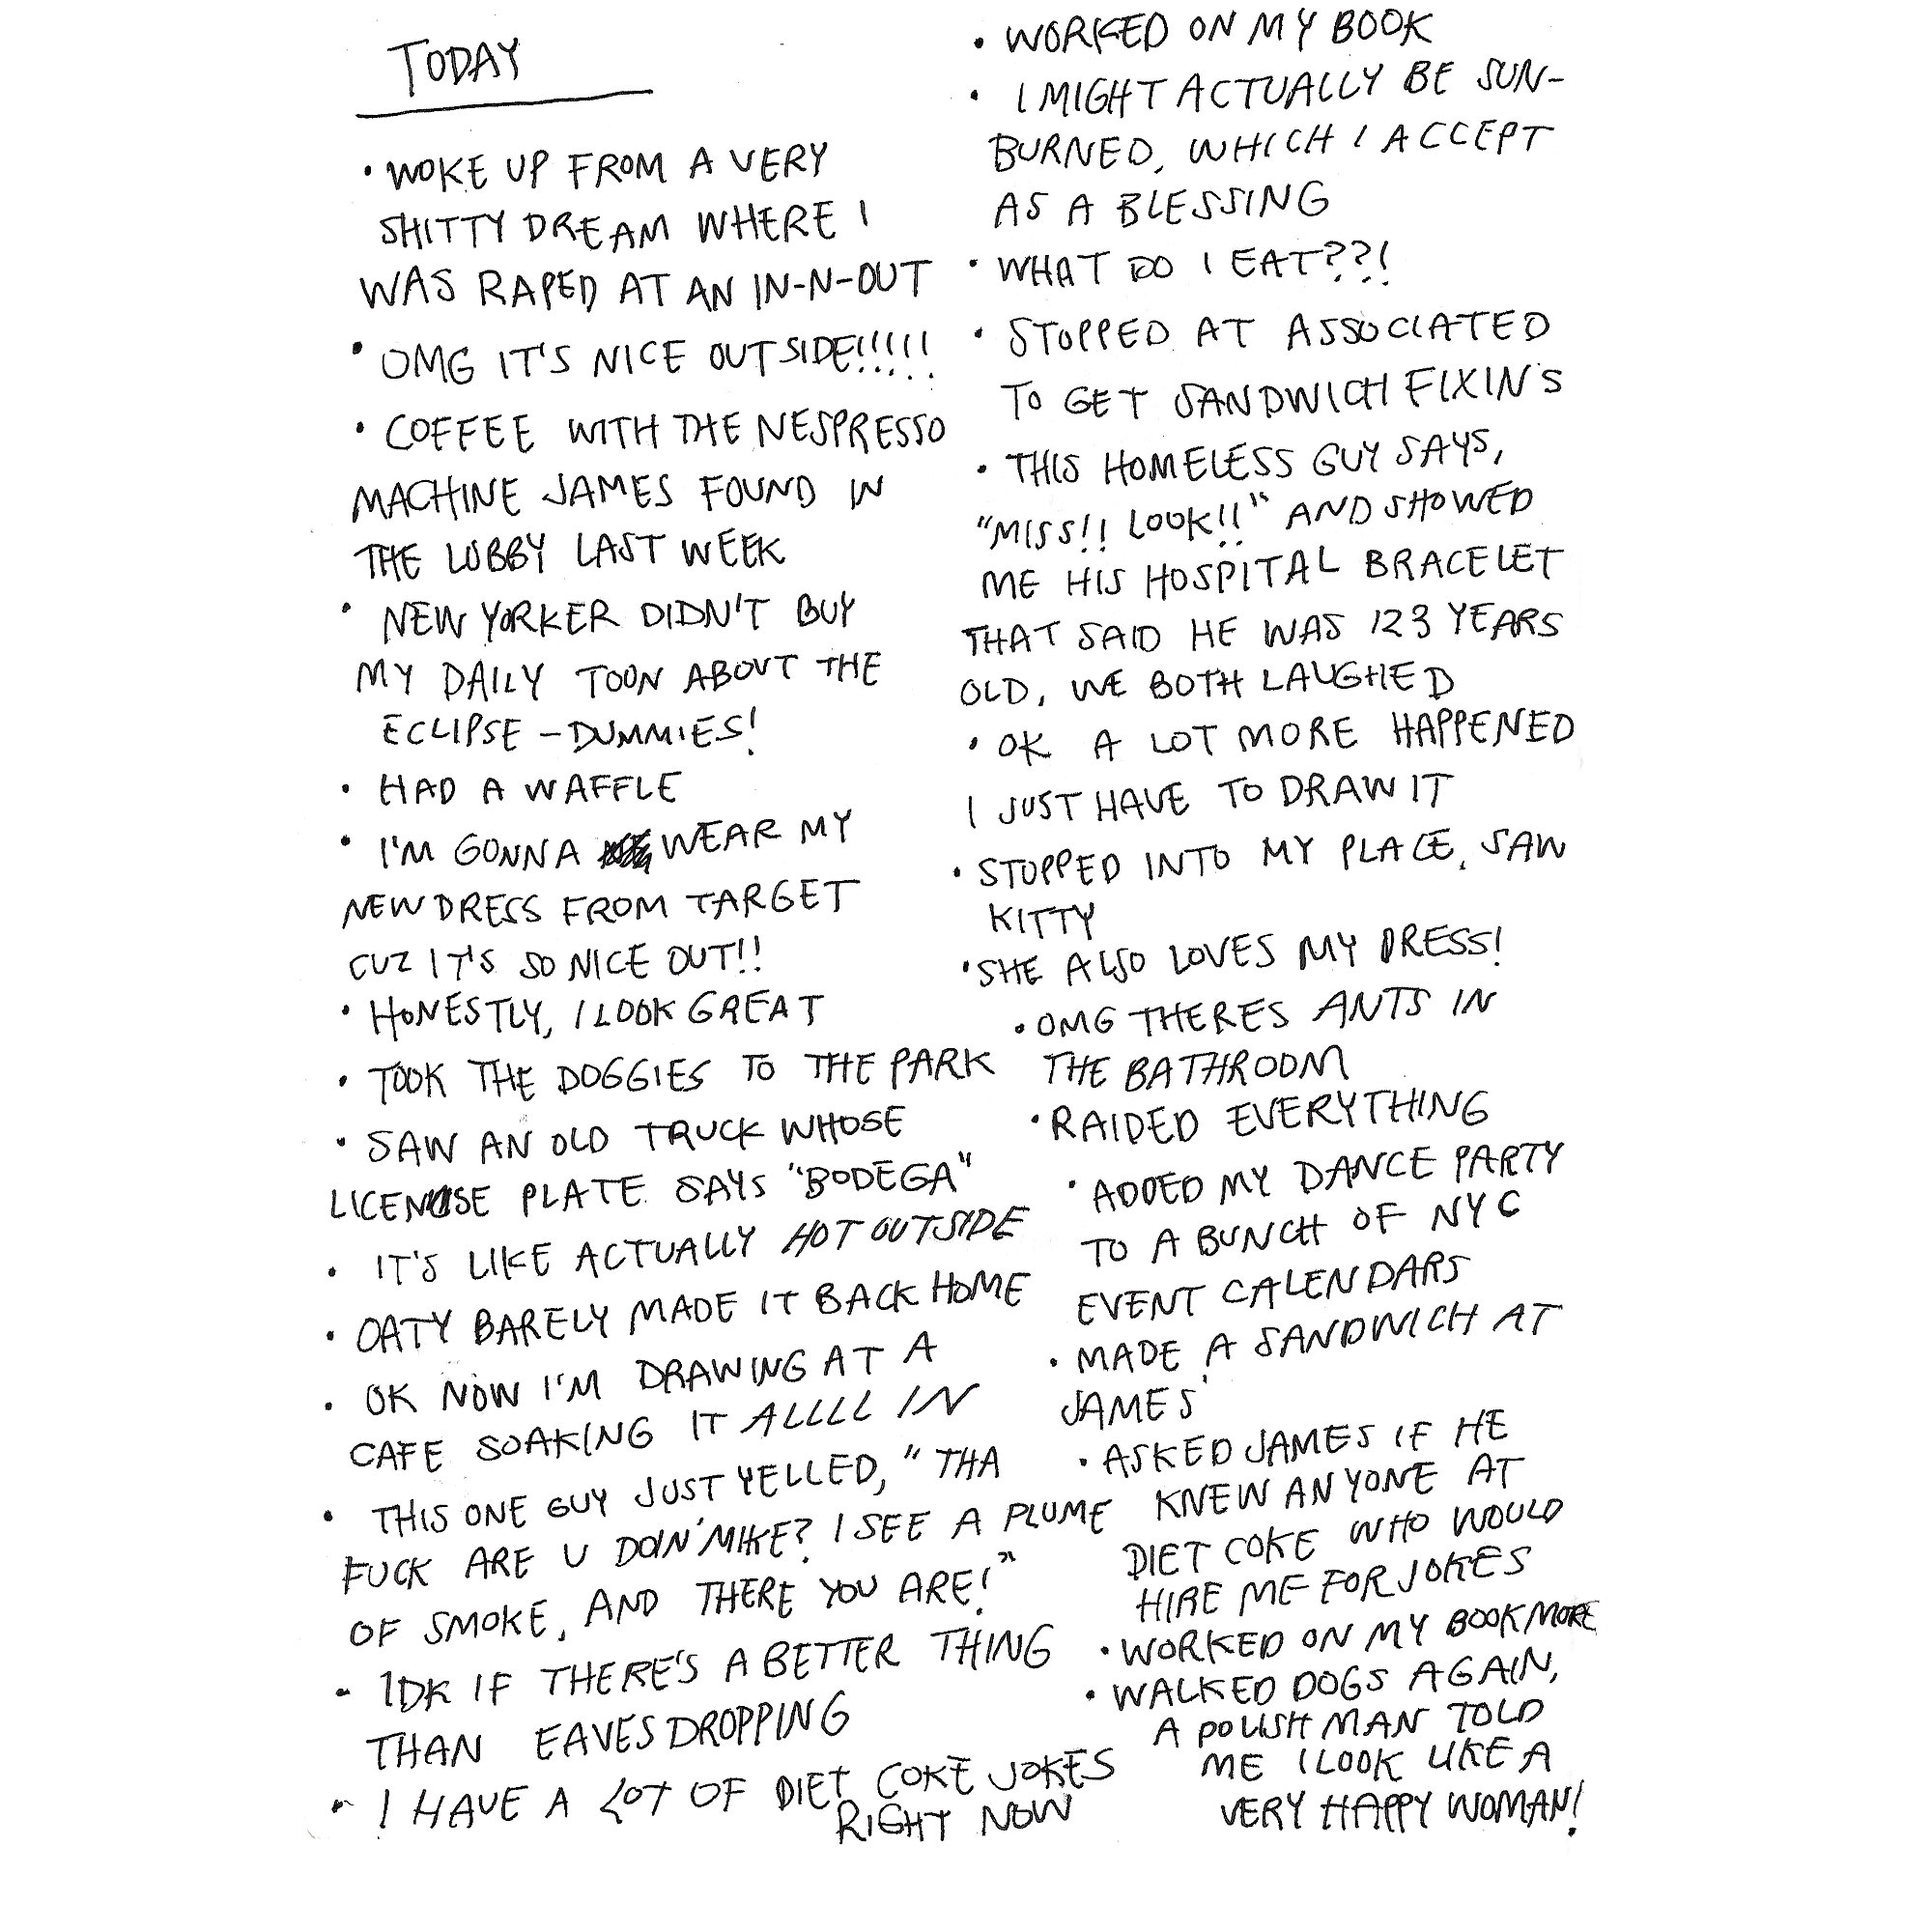 TODAY
• WOKE UP FROM A VERY
SHITTY DREAM WHERE I
WAS RAPED AT AN IN-N-OUT
• OMG IT'S NICE OUTSIDE!!!!!
• COFFEE WITH THE NESPRESSO
MACHINE JAMES FOUND IN
THE LOBBY LAST WEEK
• NEW YORKER DIDN'T BUY
MY DAILY TOON ABOUT THE
ECLIPSE – DUMMIES!
• HAD A WAFFLE
• I'M GONNA WEAR MY
NEW DRESS FROM TARGET
CUZ IT'S SO NICE OUT!!
• HONESTLY, I LOOK GREAT
• TOOK THE DOGGIES TO THE PARK
• SAW AN OLD TRUCK WHOSE
LICENSE PLATE SAYS "BODEGA"
• IT'S LIKE ACTUALLY HOT OUTSIDE
• OATY BARELY MADE IT BACK HOME
• OK NOW I'M DRAWING AT A
CAFE SOAKING IT ALLLL IN
• THIS ONE GUY JUST YELLED, "THA
FUCK ARE U DOIN' MIKE? I SEE A PLUME
OF SMOKE, AND THERE YOU ARE!"
- IDK IF THERE'S A BETTER THING
THAN EAVESDROPPING
• I HAVE A LOT OF DIET COKE JOKES
RIGHT NOW
• WORKED ON MY BOOK
• I MIGHT ACTUALLY BE SUN-
BURNED, WHICH I ACCEPT
AS A BLESSING
• WHAT DO I EAT??!
• STOPPED AT ASSOCIATED
TO GET SANDWICH FIXIN'S
• THIS HOMELESS GUY SAYS,
"MISS!! LOOK!!" AND SHOWED
ME HIS HOSPITAL BRACELET
THAT SAID HE WAS 123 YEARS
OLD, WE BOTH LAUGHED
• OK A LOT MORE HAPPENED
I JUST HAVE TO DRAW IT
• STOPPED INTO MY PLACE, SAW
KITTY
• SHE ALSO LOVES MY DRESS!
• OMG THERES ANTS IN
THE BATHROOM
• RAIDED EVERYTHING
• ADDED MY DANCE PARTY
TO A BUNCH OF NYC
EVENT CALENDARS
• MADE A SANDWICH AT
JAMES'
• ASKED JAMES IF HE
KNEW ANYONE AT
DIET COKE WHO WOULD
HIRE ME FOR JOKES
• WORKED ON MY BOOK MORE
• WALKED DOGS AGAIN,
A POLISH MAN TOLD
ME I LOOK LIKE A
VERY HAPPY WOMAN!